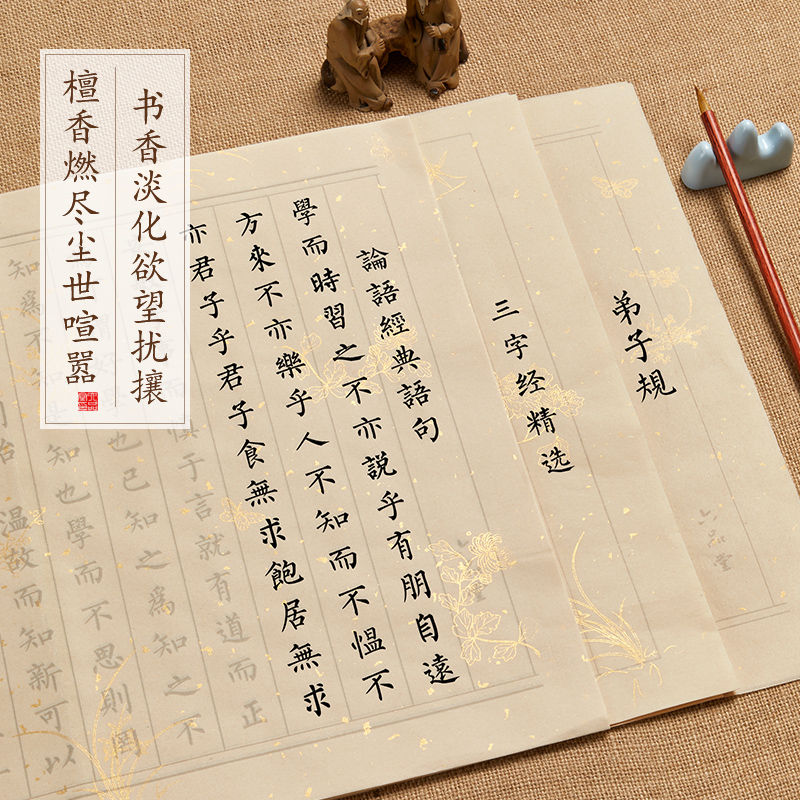 书香淡化欲望扰攘
檀香燃尽尘世喧嚣
弟子規
六品堂
三字经精选
論語經典語句
學而時習之不亦説乎有朋自遠
方來不亦樂乎人不知而不愠不
亦君子乎君子食無求飽居無求
慎于言就有道而正
也已知之爲知之不
知也學而不思則罔
温故而知新可以